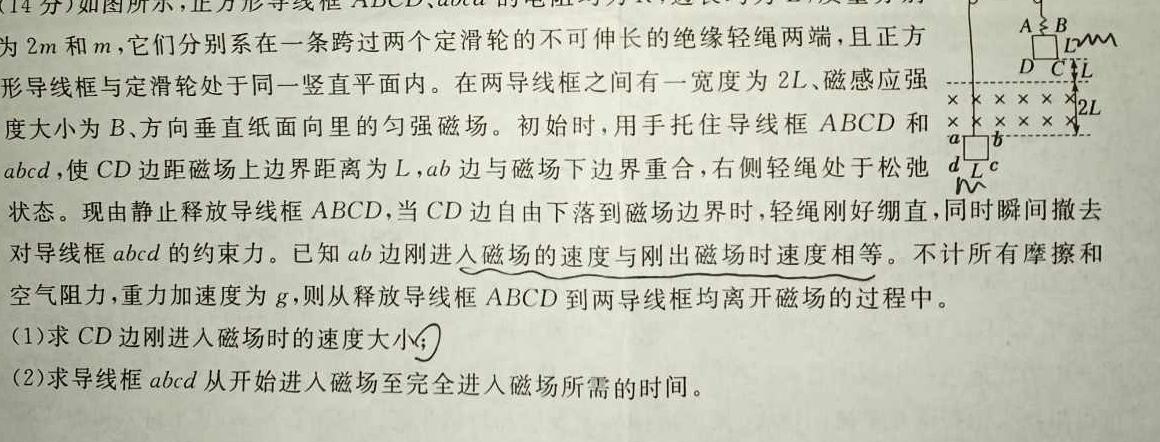 (14分)如图所示,正方形导线框ABCD、abcd的电阻均为R,边长均为L,质量分别
为2m和m,它们分别系在一条跨过两个定滑轮的不可伸长的绝缘轻绳两端,且正方
形导线框与定滑轮处于同一竖直平面内。在两导线框之间有一宽度为2L、磁感应强
度大小为B、方向垂直纸面向里的匀强磁场。初始时,用手托住导线框ABCD和
abcd,使CD边距磁场上边界距离为L,ab边与磁场下边界重合,右侧轻绳处于松弛
状态。现由静止释放导线框ABCD,当CD边自由下落到磁场边界时,轻绳刚好绷直,同时瞬间撤去
对导线框abcd的约束力。已知ab边刚进入磁场的速度与刚出磁场时速度相等。不计所有摩擦和
空气阻力,重力加速度为g,则从释放导线框ABCD到两导线框均离开磁场的过程中。
(1)求CD边刚进入磁场时的速度大小;
(2)求导线框abcd从开始进入磁场至完全进入磁场所需的时间。
A B
L
D C L
2L
a b
d L c